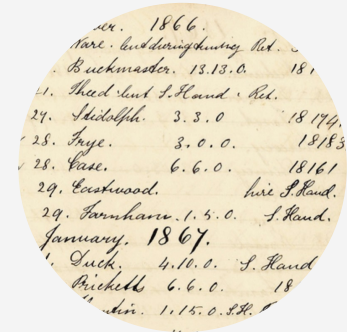 1866.
Ware. lent during tuning Ret.
Buckmaster. 13.13.0. 181
Theed lent S. Hand. Ret.
27. Stidolph. 3.3.0 18174
28. Frye. 3.0.0. 18183
28. Case. 6.6.0. 18161
29. Eastwood. hire S. Hand.
29. Farnham. 1.5.0. S. Hand.
January. 1867.
Duck. 4.10.0. S. Hand
Bricketts 6.6.0. 18
1.15.0. S.H.